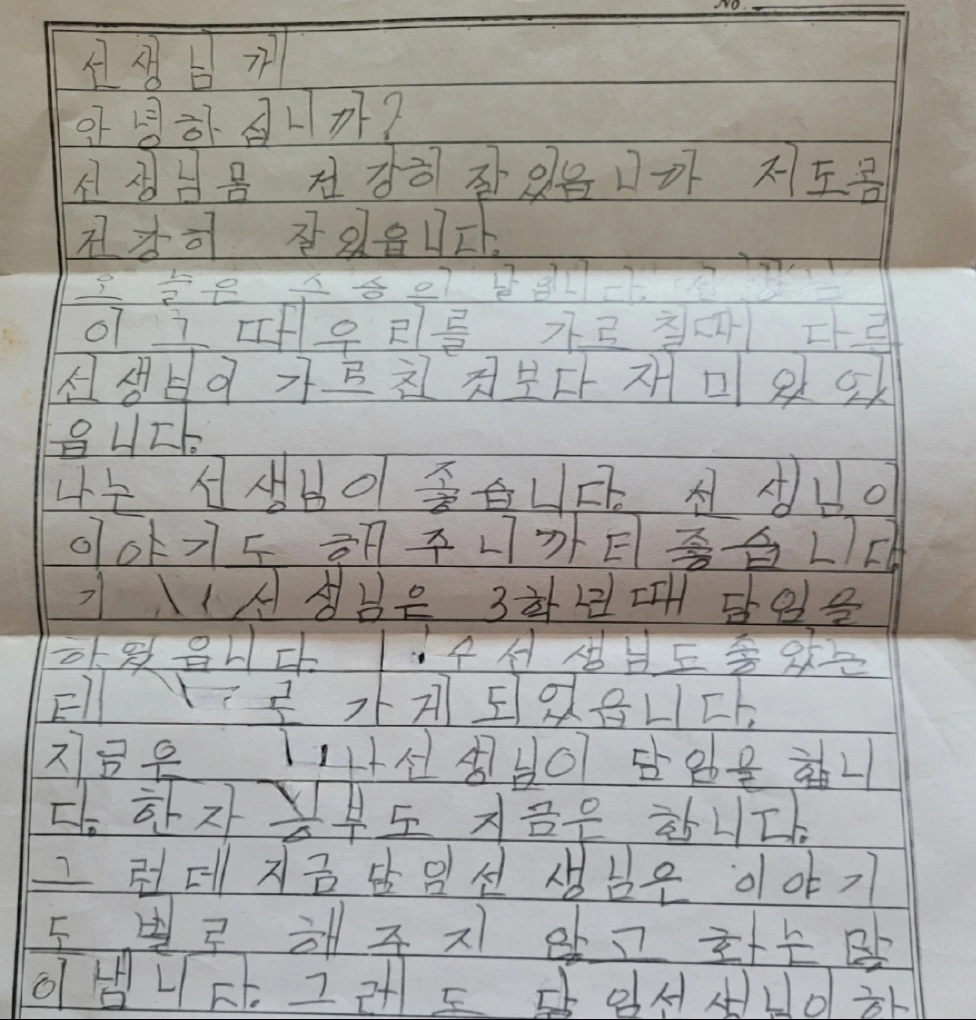 No.
선생님게
안녕하십니까?
선생님몸 건강히 잘있읍니까 저도몸
건강히 잘있읍니다.
오늘은 스승의 날입니다. 선생님
이 그 때 우리를 가르칠때 다르
선생님이 가르친 것보다 재미있었
읍니다.
나는 선생님이 좋습니다. 선생님이
이야기도 해주니까 더 좋습니다
선생님은 3학년때 담임을
하였읍니다. 수선생님도 좋았는
데 로 가게 되었읍니다.
지금은 선생님이 담임을 합니
다. 한자 공부도 지금은 합니다.
그런데 지금담임선생님은 이야기
도 별로 해주지 않고 화는 많
이 냅니다. 그래도 담임선생님이 하